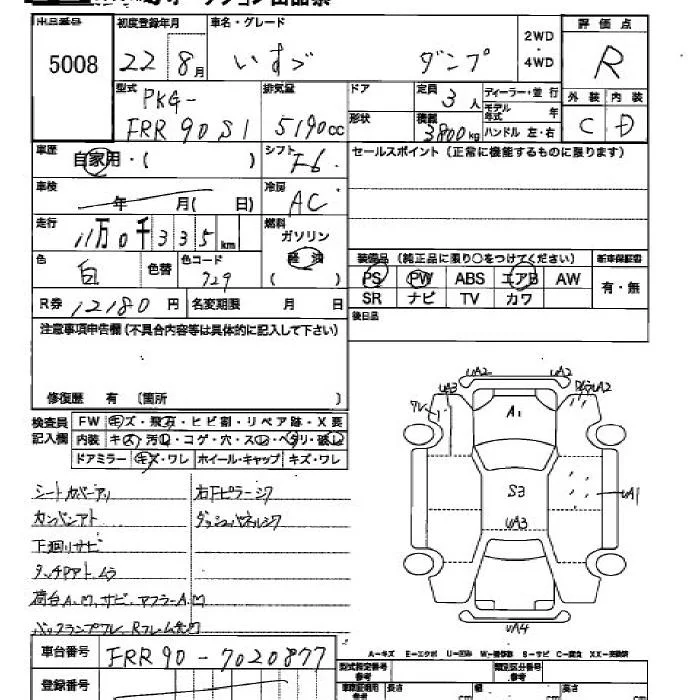 出品番号 初度登録年月 車名・グレード 2WD・4WD 評価点
5008 22 8月 いすゞ ダンプ R
型式 排気量 ドア 定員 3人 ディーラー・並行 外装 内装
PKG- モデル年式 年 C D
FRR90S1 5190cc 形状 積載 3800kg ハンドル 左・右
車歴 自家用・( ) シフト F6 セールスポイント(正常に機能するものに限ります)
車検 年 月( 日) 冷房 AC
走行 11万0千335km 燃料 ガソリン 軽油
色 白 色替 色コード 729 装備品(純正品に限り○をつけてください) 新車保証書
PS PW ABS エアB AW 有・無
R券 12180円 名変期限 月 日 SR ナビ TV カワ
注意事項申告欄(不具合内容等は具体的に記入して下さい) 後日品
修復歴 有 〔箇所 〕
検査員記入欄 FW キズ・飛石・ヒビ割・リペア跡・X要
内装 キズ・汚れ・コゲ・穴・スレ・ヘタリ・破れ
ドアミラー キズ・ワレ ホイール・キャップ キズ・ワレ
シートカバーアリ 右下ピラーシワ
カンバンアト ダッシュパネルシワ
下廻りサビ
タッチPアト ムラ
荷台A.凹.サビ.マフラーA.凹
バックランプワレ
UA3 UA2 UA2
ワレ A1
S3 UA1
UA3
UA4
A=キズ E=エクボ U=凹み W=補修跡 S=サビ C=腐食 XX=交換済
車台番号 FRR90-7020877
登録番号 型式指定番号 参考 類別区分番号 参考
車庫証明用 参考 長さ cm 幅 cm 高さ cm